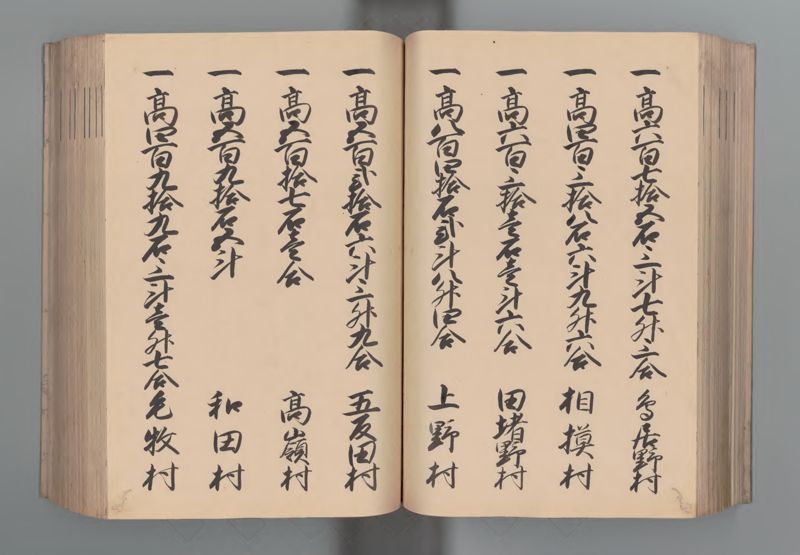 一高六百七拾五石三斗七升三合 鳥居野村
一高四百三拾八石六斗九升六合 相摸村
一高六百三拾壱石壱斗六合 田堵野村
一高八百四拾石弐斗八升四合 上野村
一高五百弐拾石六斗三升九合 五反田村
一高五百拾七石壱合 高嶺村
一高五百九拾石五斗 和田村
一高四百九拾九石三斗壱升七合 毛牧村